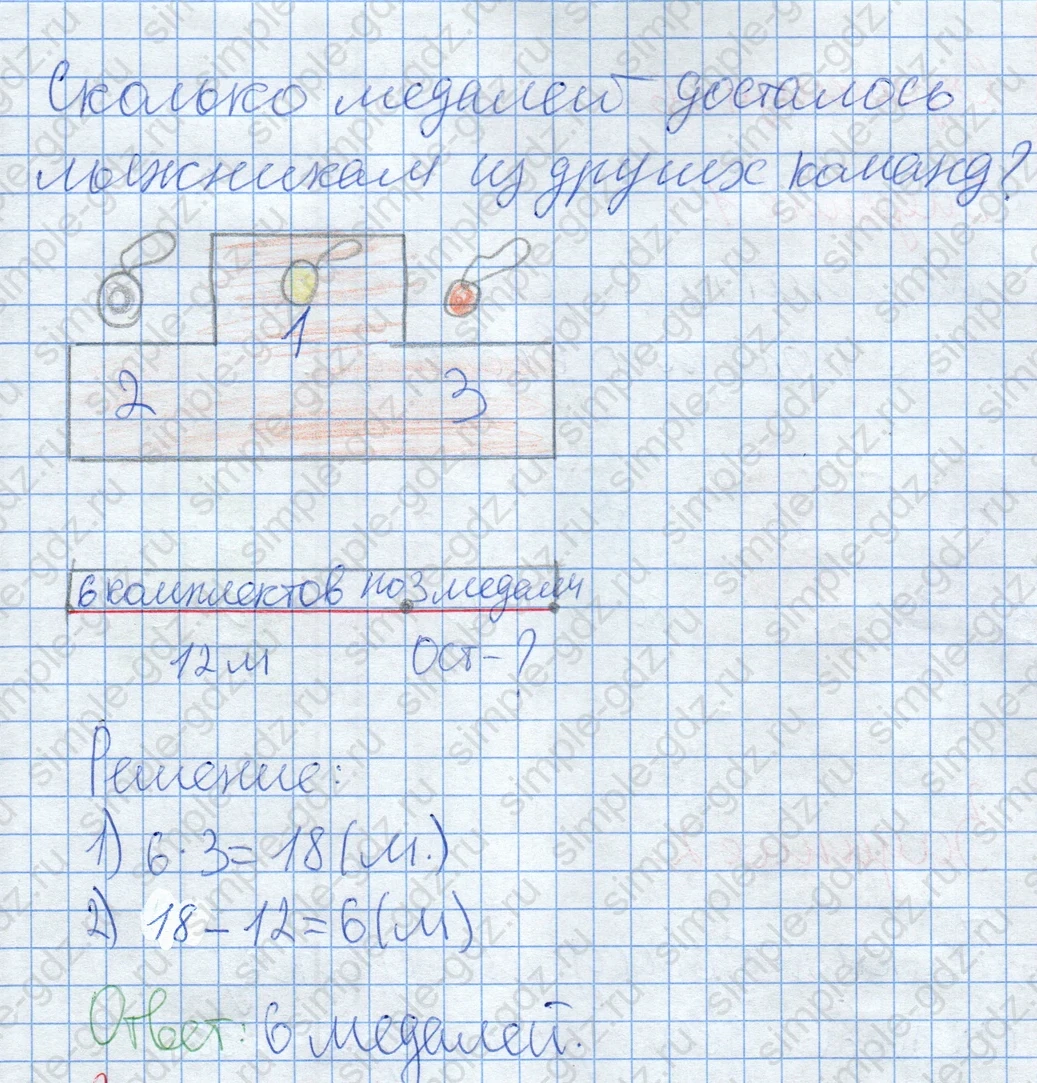 Сколько медалей досталось
лыжникам из других команд?
1
2 3
6 комплектов по 3 медали
12 м Ост-?
Решение:
1) 6·3=18(м.)
2) 18-12=6(м)
Ответ: 6 медалей.
simple-gdz.ru